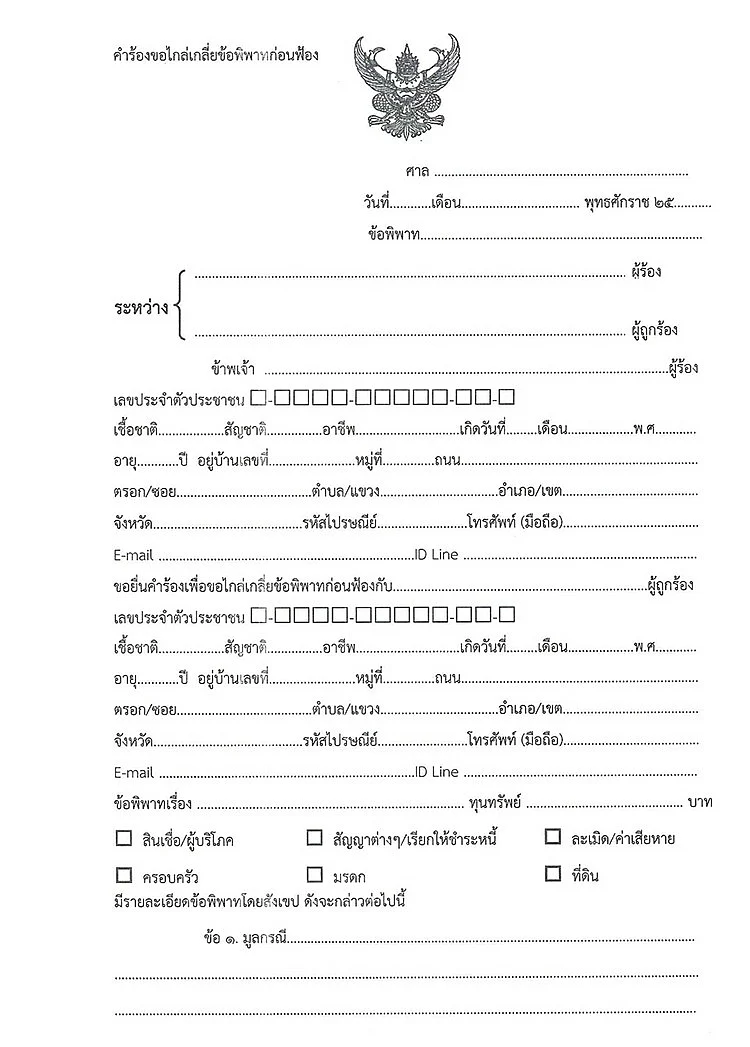 คำร้องขอไกล่เกลี่ยข้อพิพาทก่อนฟ้อง
ศาล ..............................................................
วันที่...........เดือน............................... พุทธศักราช ๒๕..........
ข้อพิพาท.....................................................................
ระหว่าง
......................................................................................................... ผู้ร้อง
......................................................................................................... ผู้ถูกร้อง
ข้าพเจ้า ...................................................................................................ผู้ร้อง
เลขประจำตัวประชาชน □-□□□□-□□□□□-□□-□
เชื้อชาติ................สัญชาติ..............อาชีพ..........................เกิดวันที่........เดือน................พ.ศ..........
อายุ..........ปี อยู่บ้านเลขที่.....................หมู่ที่.............ถนน.................................................................
ตรอก/ซอย.................................ตำบล/แขวง.............................อำเภอ/เขต.................................
จังหวัด....................................รหัสไปรษณีย์......................โทรศัพท์ (มือถือ).................................
E-mail ..............................................................ID Line .........................................................
ขอยื่นคำร้องเพื่อขอไกล่เกลี่ยข้อพิพาทก่อนฟ้องกับ..............................................................ผู้ถูกร้อง
เลขประจำตัวประชาชน □-□□□□-□□□□□-□□-□
เชื้อชาติ................สัญชาติ..............อาชีพ..........................เกิดวันที่........เดือน................พ.ศ..........
อายุ..........ปี อยู่บ้านเลขที่.....................หมู่ที่.............ถนน.................................................................
ตรอก/ซอย.................................ตำบล/แขวง.............................อำเภอ/เขต.................................
จังหวัด....................................รหัสไปรษณีย์......................โทรศัพท์ (มือถือ).................................
E-mail ..............................................................ID Line .........................................................
ข้อพิพาทเรื่อง ................................................................. ทุนทรัพย์ ...................................... บาท
□ สินเชื่อ/ผู้บริโภค □ สัญญาต่างๆ/เรียกให้ชำระหนี้ □ ละเมิด/ค่าเสียหาย
□ ครอบครัว □ มรดก □ ที่ดิน
มีรายละเอียดข้อพิพาทโดยสังเขป ดังจะกล่าวต่อไปนี้
ข้อ ๑. มูลกรณี...................................................................................................
..............................................................................................................................................
..............................................................................................................................................